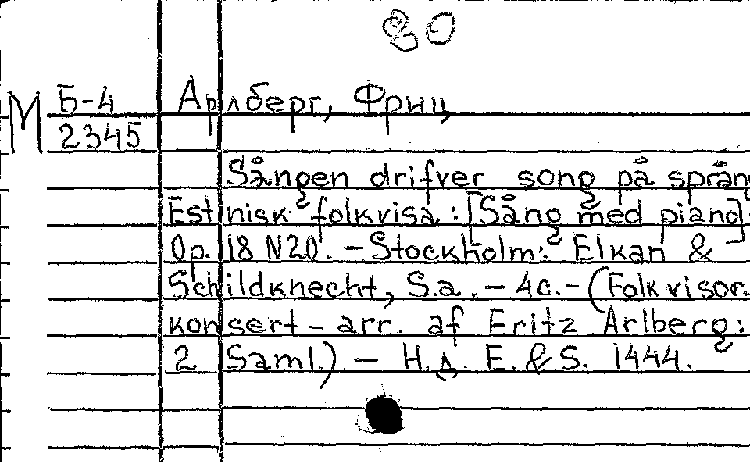 80
М Б-4
2345
Арлберг, Фриц
Sången drifver song på språn
Estnisk folkvisa: [Sång med piano].
Op. 18 N20. - Stockholm: Elkan &
Schildknecht, S.a. - 4c. - (Folkvisor.
konsert - arr. af Fritz Arlberg:
2 Saml.) - Н.д. E. & S. 1444.